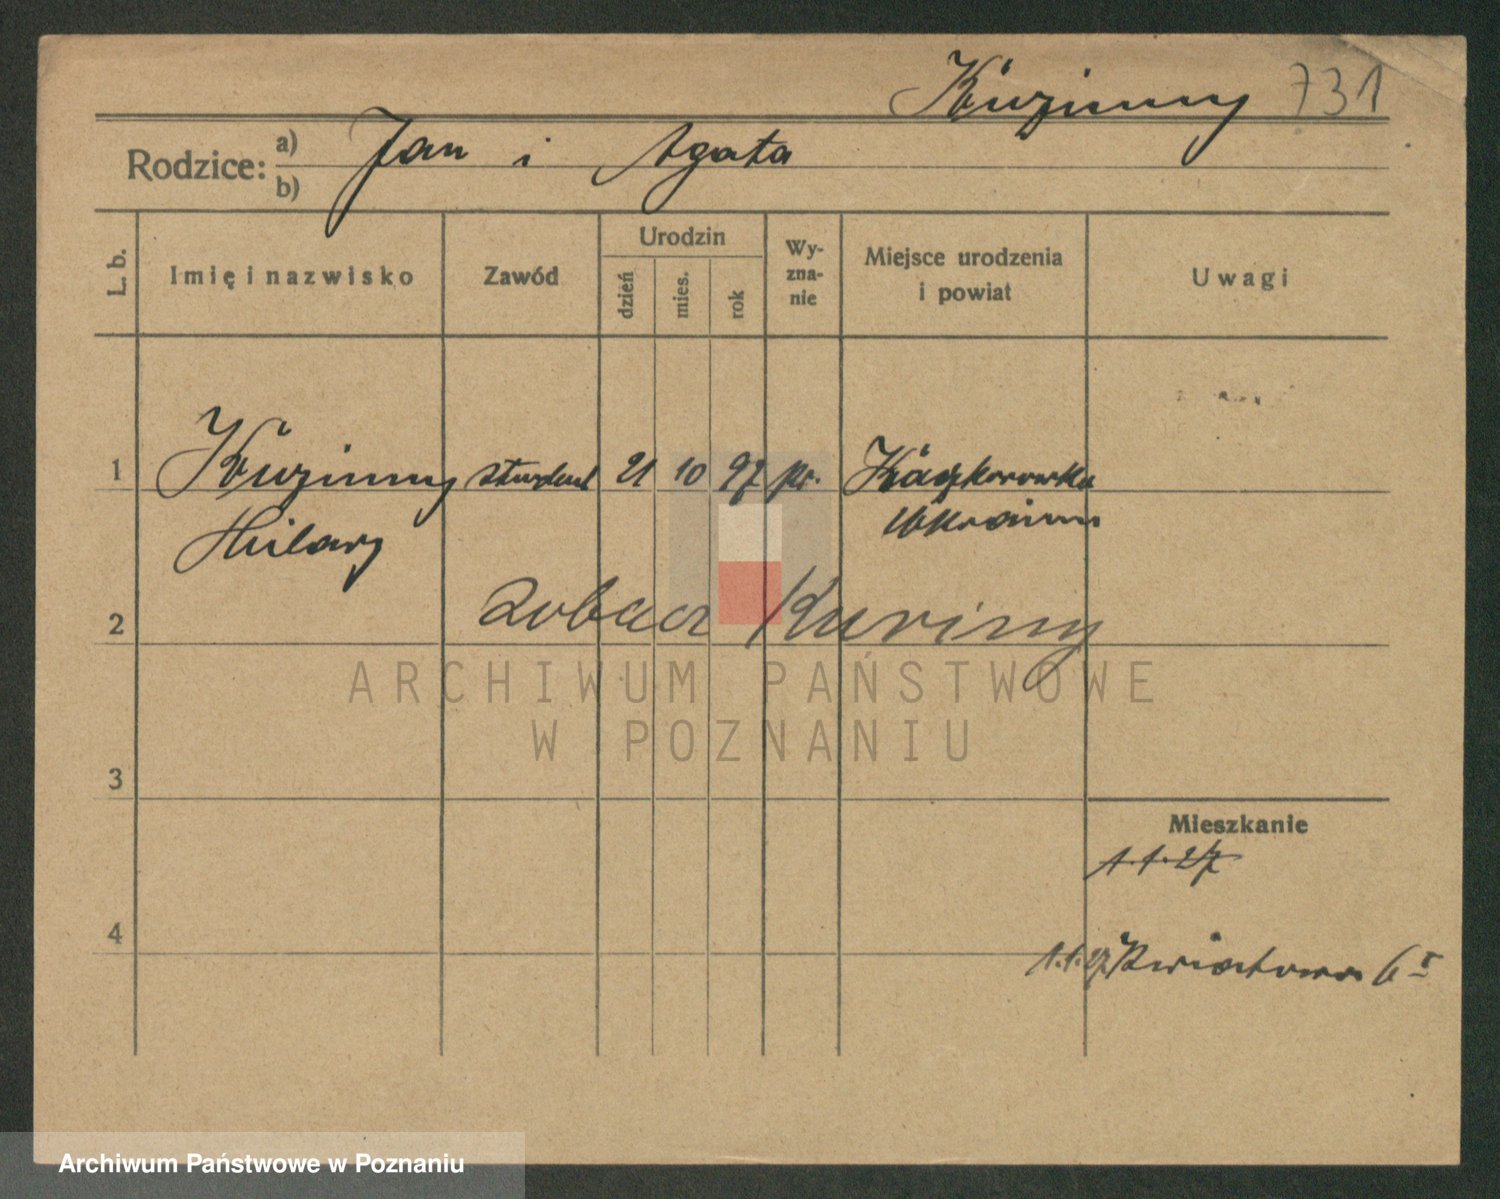 Kuzimny 731
Rodzice: a) b) Jan i Agata
L. b.
Imię i nazwisko
Zawód
Urodzin
dzień
mies.
rok
Wy-
zna-
nie
Miejsce urodzenia
i powiat
Uwagi
1 Kuzimny student 21 10 97 pr.
Hilary
Ukraina
2 Zobacz Kuzimny
ARCHIWUM PAŃSTWOWE
W POZNANIU
3
Mieszkanie
1.1.27
4
1.1.27 Kwiatowa 6 I
Archiwum Państwowe w Poznaniu